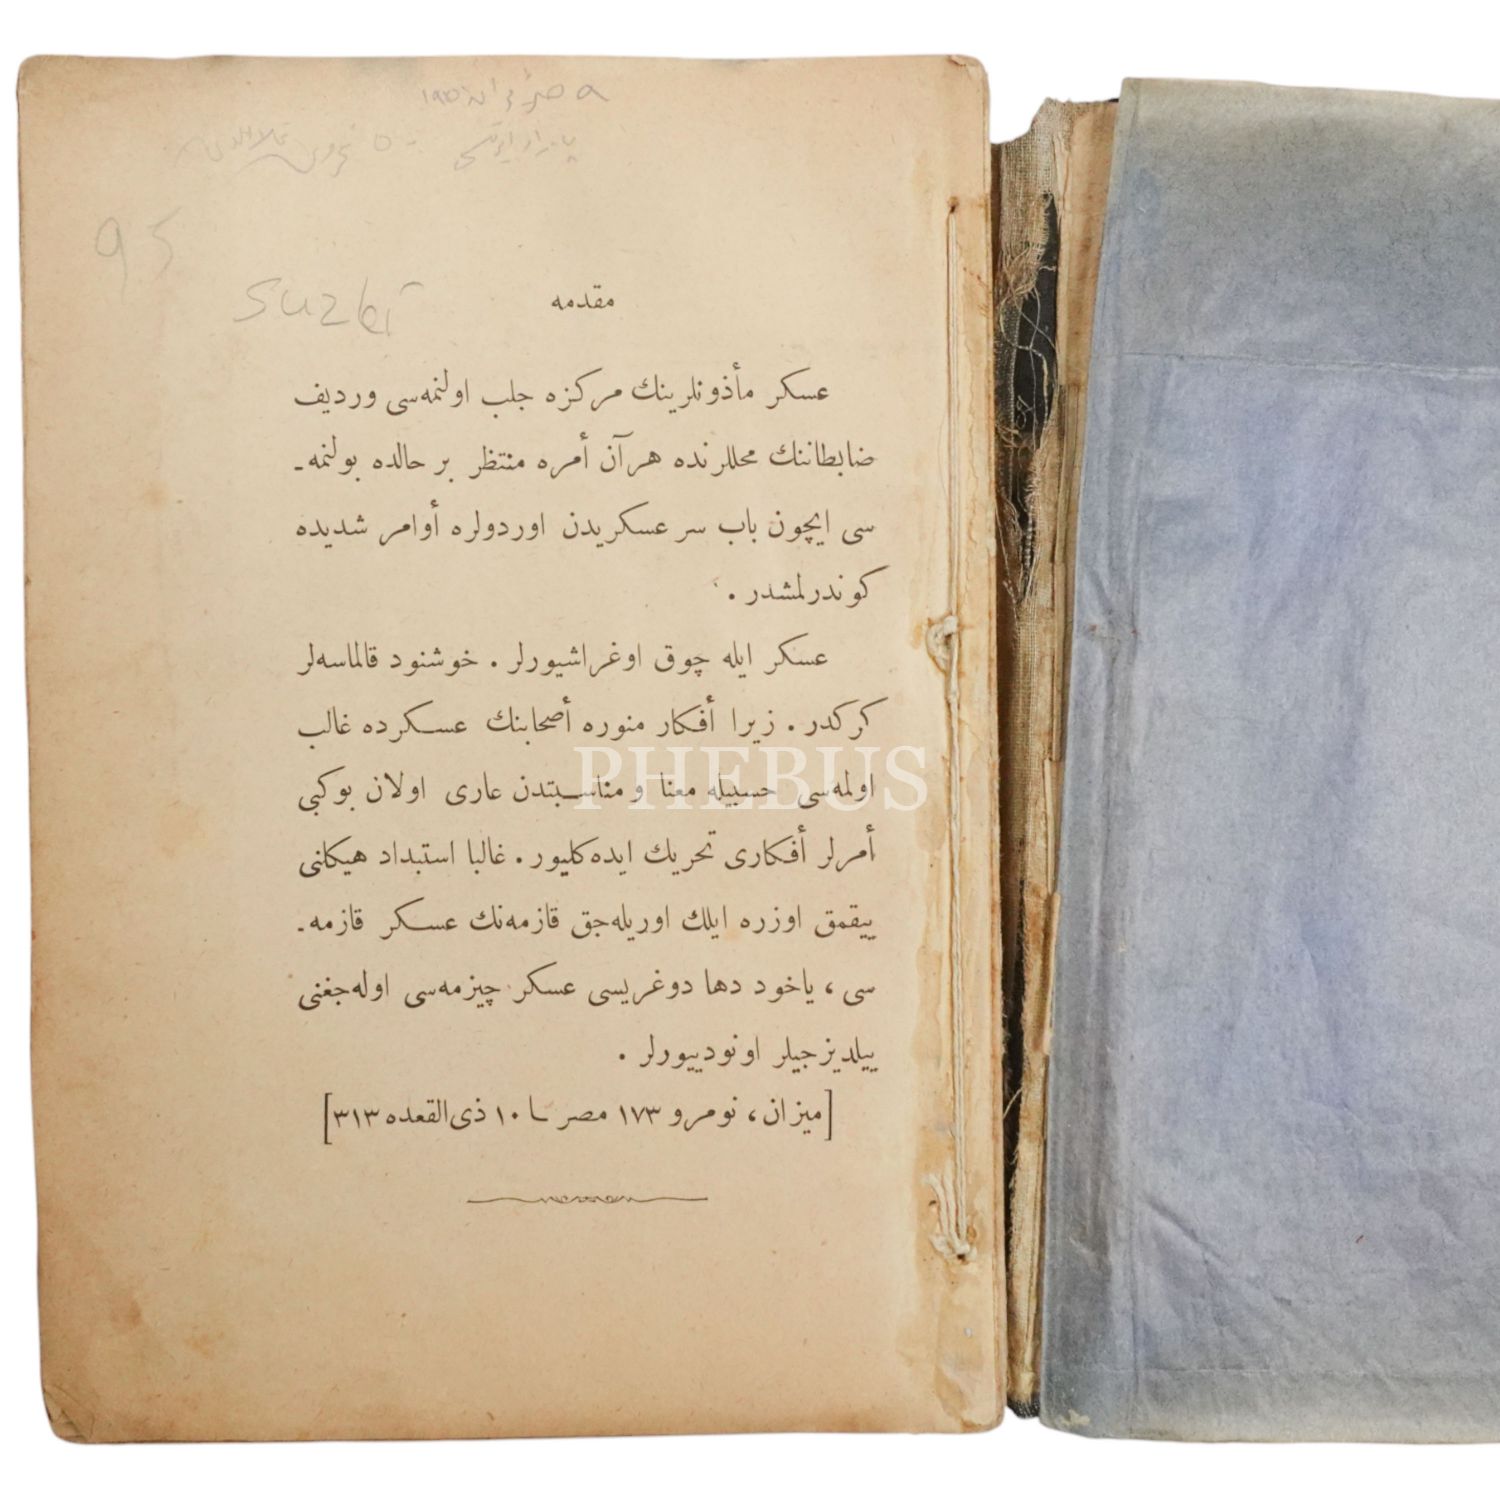 95
suzki
مقدمه
عسكر مأذونلرینك مركزه جلب اولنمه‌سی وردیف
ضابطاننك محللرنده هرآن أمره منتظر بر حالده بولنمه‌ـ
سی ایچون باب سر عسكریدن اوردولره أوامر شدیده
كوندرلمشدر .
عسكر ایله چوق اوغراشیورلر . خوشنود قالماسه‌لر
كركدر . زیرا أفكار منوره أصحابنك عسكرده غالب
اولمه‌سی حسبیله معنا و مناسبتدن عاری اولان بوكبی
أمرلر أفكاری تحریك ایده‌كلیور . غالبا استبداد هیكلنی
ییقمق اوزره ایلك اوریله‌جق قازمه‌نك عسكر قازمه‌ـ
سی ، یاخود دها دوغریسی عسكر چیزمه‌سی اوله‌جغنی
ییلدیزجیلر اونودییورلر .
[میزان ، نومرو ١٧٣ مصر ـ ١٠ ذی‌القعده ٣١٣]
PHEBUS